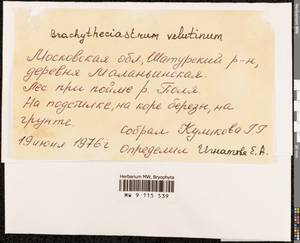 Brachytheciastrum velutinum
Московская обл, Шатурский р-н,
деревня Маланьинская.
Лес при пойме р. Поля.
На подстилке, на коре берез, на
грунте.
Собрал Куликова Г.Г
19 июня 1976 г Определил Игнатова Е.А.
Herbarium MW, Bryophyta
MW 9 115 539